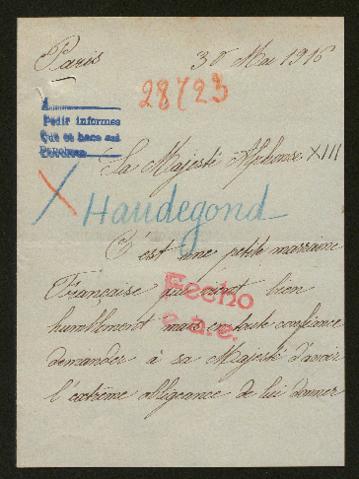 Paris 30 Mai 1916
28723
A
Pedir informes
Que se hace así
Sa Majesté Alphonse XIII
X Haudegond
C'est une petite marraine
Française qui vient bien
Fecho
humblement mais en toute confiance
c.a.e.
demander à sa Majesté d'avoir
l'extrême obligeance de lui donner